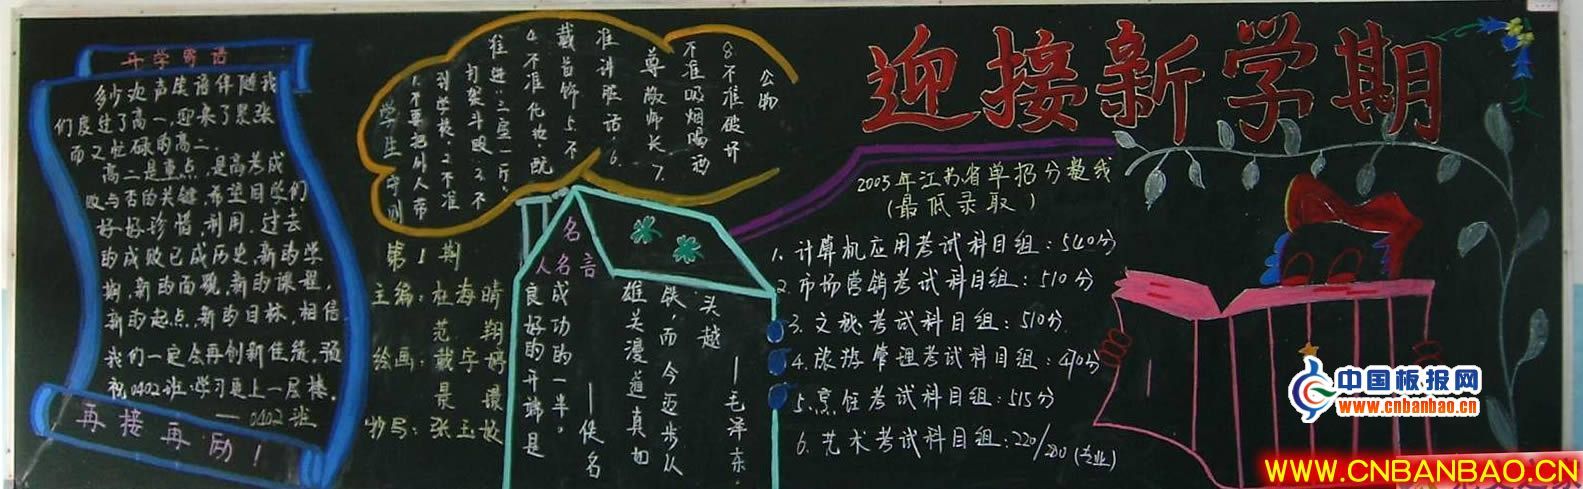 迎接新学期
开学寄语
多少欢声笑语伴随我
们度过了高一,迎来了紧张
而又忙碌的高二.
高二是重点,是高考成
败与否的关键.希望同学们
好好珍惜,利用.过去
的成败已成历史,新的学
期,新的面貌,新的课程,
新的起点,新的目标,相信
我们一定会再创新佳绩.预
祝0402班:学习更上一层楼.
——0402班
再接再励!
学生守则
1.不要把外人带
到学校.2.不准
打架斗殴.3.不
准进:三室一厅.
4.不准化妆,
戴首饰.5.不
准讲脏话.6.
尊敬师长.7.
不准吸烟喝酒
8.不准破坏
公物
第1期
主编:杜海晴
范翔
绘画:戴宇婷
张玉
名人名言
良好的开端是
成功的一半。
——佚名
雄关漫道真如
铁,而今迈步从
头越
——毛泽东.
2005年江苏省单招分数线
(最低录取)
1.计算机应用考试科目组:540分
2.市场营销考试科目组:510分
3.文秘考试科目组:510分.
4.旅游管理考试科目组:490分
5.烹饪考试科目组:515分
6.艺术考试科目组:220/280(专业)
中国板报网
www.cnbanbao.cn
WWW.CNBANBAO.CN